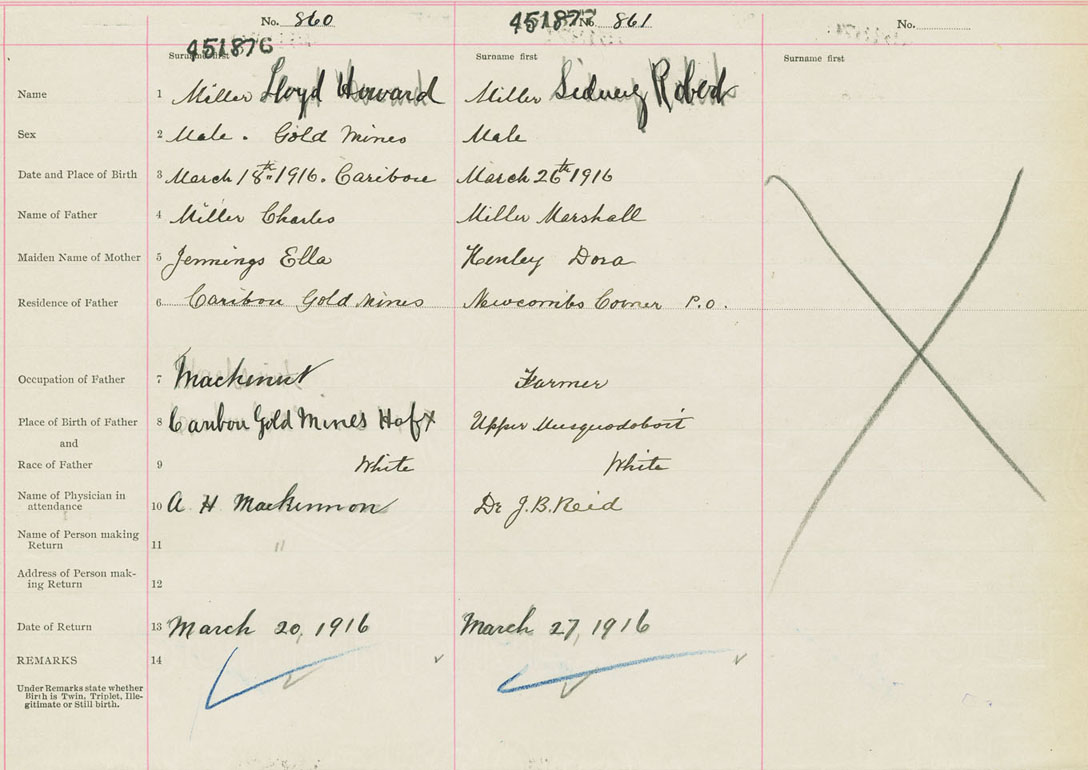 No. 860 451877 No. 861 No.
451876
Surname first Surname first Surname first
Name 1 Miller Lloyd Howard Miller Sidney Robert
Sex 2 Male. Gold Mines Male
Date and Place of Birth 3 March 18th 1916. Caribou March 26th 1916
Name of Father 4 Miller Charles Miller Marshall
Maiden Name of Mother 5 Jennings Ella Henley Dora
Residence of Father 6 Caribou Gold Mines Newcombs Corner P.O.
Occupation of Father 7 Farmer
Place of Birth of Father 8 Caribou Gold Mines Hafx Upper Musquodoboit
and
Race of Father 9 White White
Name of Physician in
attendance 10 A H Mackinnon Dr J.B. Reid
Name of Person making
Return 11 "
Address of Person mak-
ing Return 12
Date of Return 13 March 20, 1916 March 27, 1916
REMARKS 14
Under Remarks state whether
Birth is Twin, Triplet, Ille-
gitimate or Still birth.